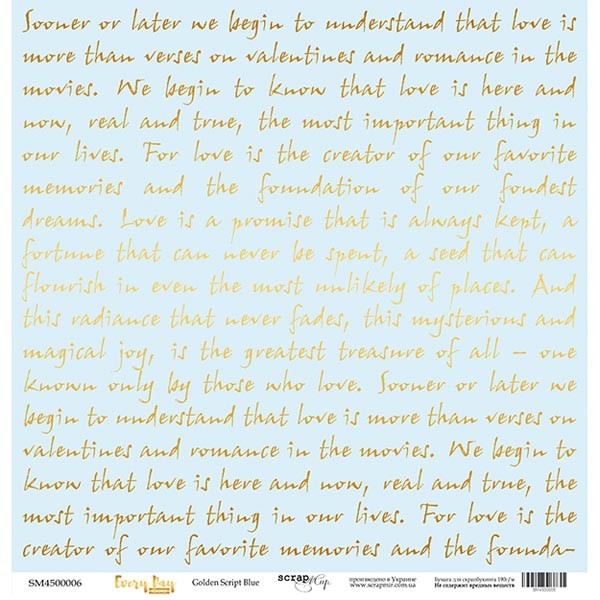 Sooner or later we begin to understand that love is
more than verses on valentines and romance in the
movies. We begin to know that love is here and
now, real and true, the most important thing in
our lives. For love is the creator of our favorite
memories and the foundation of our fondest
dreams. Love is a promise that is always kept, a
fortune that can never be spent, a seed that can
flourish in even the most unlikely of places. And
this radiance that never fades, this mysterious and
magical joy, is the greatest treasure of all – one
known only by those who love. Sooner or later we
begin to understand that love is more than verses on
valentines and romance in the movies. We begin to
know that love is here and now, real and true, the
most important thing in our lives. For love is the
creator of our favorite memories and the founda-
SM4500006 Every Day Golden Script Blue scrapМир произведено в Украине Бумага для скрапбукинга 190г/м
www.scrapmir.com.ua Не содержит вредных веществ
SM4500006